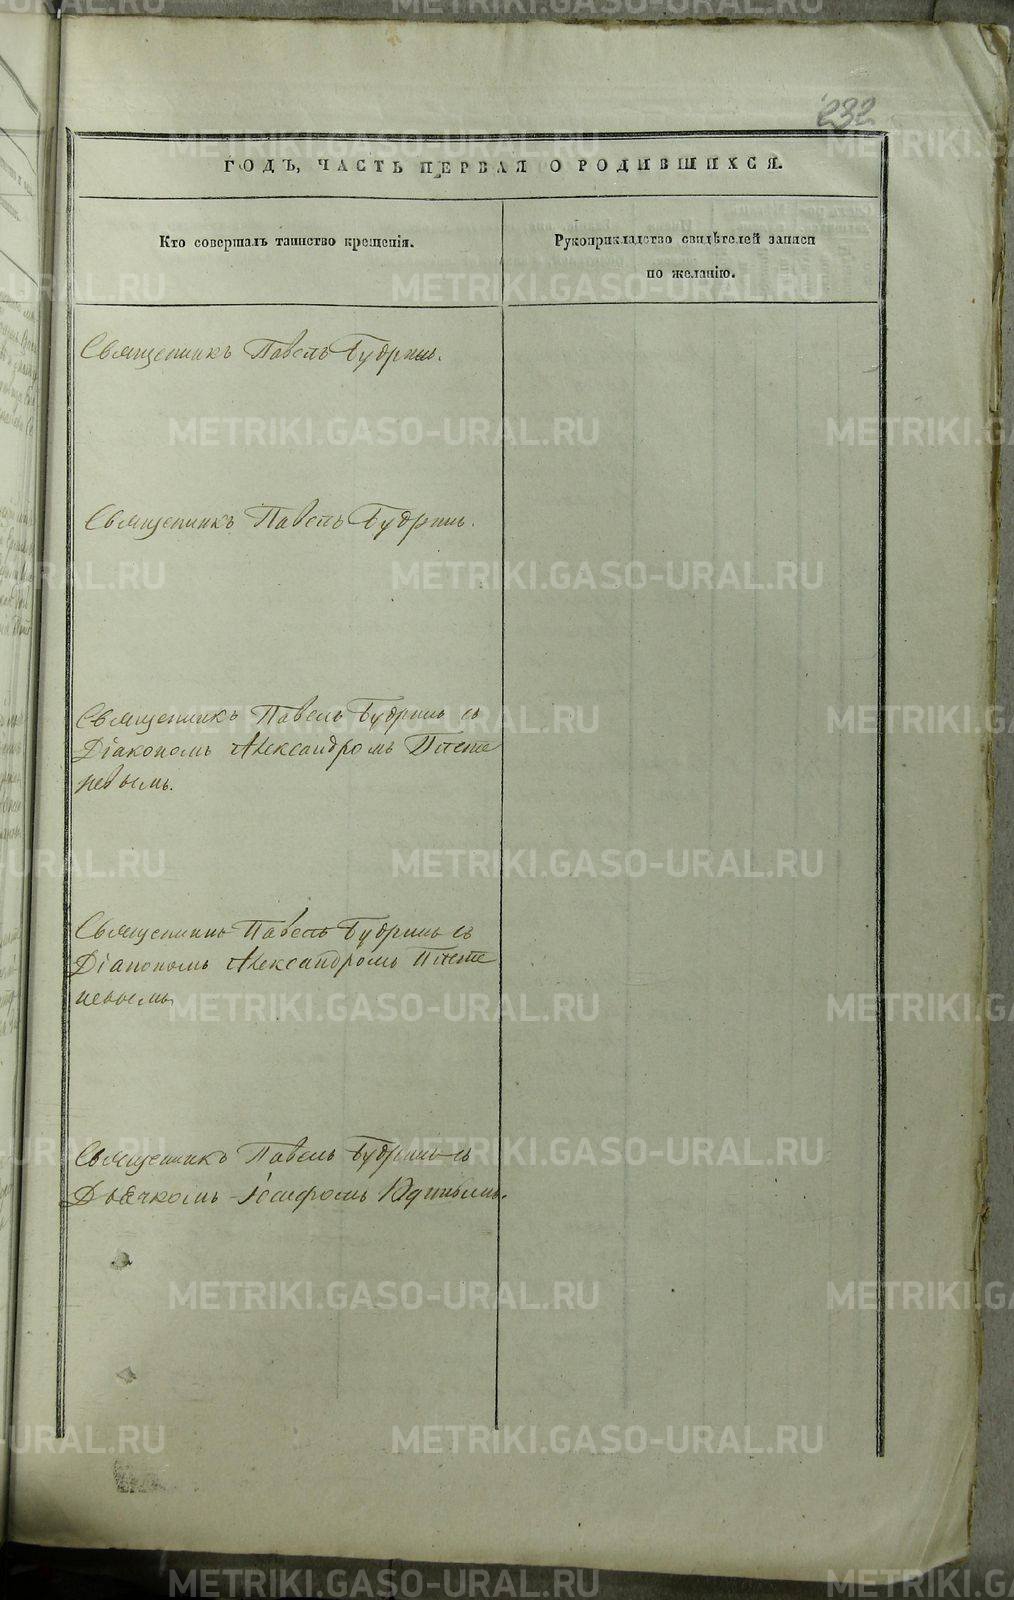 232
ГОДЪ, ЧАСТЬ ПЕРВАЯ О РОДИВШИХСЯ.
Кто совершалъ таинство крещенія.
Рукоприкладство свидѣтелей записи
по желанію.
Священникъ Павелъ Будринъ.
Священникъ Павелъ Будринъ.
Священникъ Павелъ Будринъ съ
Діакономъ Александромъ Плете
невымъ.
Священникъ Павелъ Будринъ съ
Діакономъ Александромъ Плете
невымъ
Священникъ Павелъ Будринъ съ
Дьячкомъ Іосифомъ
METRIKI.GASO-URAL.RU